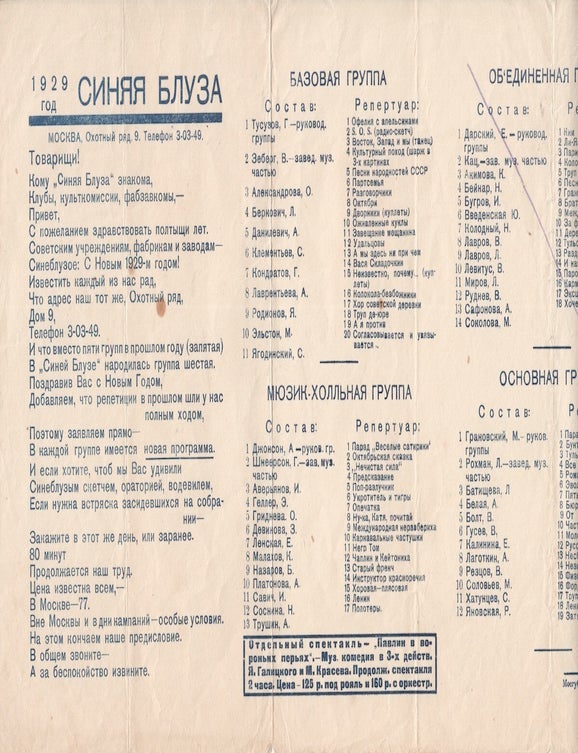 1929
год
СИНЯЯ БЛУЗА
МОСКВА, Охотный ряд, 9. Телефон 3-03-49.
Товарищи!
Кому „Синяя Блуза" знакома,
Клубы, культкомиссии, фабзавкомы,—
Привет,
С пожеланием здравствовать полтыщи лет.
Советским учреждениям, фабрикам и заводам—
Синеблузое: С Новым 1929-м годом!
Известить каждый из нас рад,
Что адрес наш тот же, Охотный ряд,
Дом 9,
Телефон 3-03-49.
И что вместо пяти групп в прошлом году (запятая)
В „Синей Блузе" народилась группа шестая.
Поздравив Вас с Новым Годом,
Добавляем, что репетиции в прошлом шли у нас
полным ходом,
Поэтому заявляем прямо—
В каждой группе имеется новая программа.
И если хотите, чтоб мы Вас удивили
Синеблузым скетчем, ораторией, водевилем,
Если нужна встряска засидевшихся на собра-
нии—
Закажите в этот же день, или заранее.
80 минут
Продолжается наш труд.
Цена известна всем,—
В Москве—77.
Вне Москвы и в дни кампаний—особые условия.
На этом кончаем наше предисловие.
В общем звоните—
А за беспокойство извините.
БАЗОВАЯ ГРУППА
Состав:
1 Тусузов, Г —руковод.
группы
2 Зеберг, В.—завед. муз.
частью
3 Александрова, О.
4 Беркович, Л.
5 Данилевич, А.
6 Клементьев, С.
7 Кондратов, Г.
8 Лаврентьева, А.
9 Родионов, Я.
10 Эльстон, М.
11 Ягодинский, С.
Репертуар:
1 Офелия с апельсинами
2 S. O. S. (радио-скетч)
3 Восток, Запад и мы (танец)
4 Культурный поход (шарж в
3-х картинах
5 Песни народностей СССР
6 Партсемья
7 Разговорчики
8 Октябрь
9 Дворники (куплеты)
10 Оживленные куклы
11 Завещание мещанина
12 Удальцовы
13 А мы здесь ни при чем
14 Вася Складочкин
15 Неизвестно, почему... (куп-
леты)
16 Колокола-безбожники
17 Хор советской деревни
18 Труп де-юре
19 А я против
20 Согласовывается и увязы-
вается
МЮЗИК-ХОЛЛЬНАЯ ГРУППА
Состав:
1 Джонсон, А —руков. гр.
2 Шнеерсон, Г.—зав. муз.
частью
3 Аверьянов, И.
4 Геллер, Э.
5 Гриднева. О.
6 Девинова, З.
7 Ленская, Е.
8 Малахов, К.
9 Назаров, Б.
10 Платонова, А.
11 Савич, И.
12 Соснина, Н.
13 Трушин, А.
Репертуар:
1 Парад „Веселые сатирики"
2 Октябрьская сказка
3 „Нечистая сила"
4 Предсказание
5 Поп-разлучник
6 Укротитель и тигры
7 Опечатка
8 Ну-ка, Катя, почитай
9 Международная кервабериха
10 Карнавальные частушки
11 Негр Том
12 Чаплин и Кейтониха
13 Старый френч
14 Инструктор красноречия
15 Хоровая—плясовая
16 Ленин
17 Полотеры.
Отдельный спектакль— „Павлин в во-
роньих перьях",—Муз. комедия в 3-х действ.
Я. Галицкого и М. Красева. Продолж. спектакля
2 часа. Цена—125 р. под рояль и 160 р. с оркестр.
ОБ'ЕДИНЕННАЯ Г
Состав:
1 Дарский, Е.— руковод.
группы
2 Кац,—зав. муз. частью
3 Акимова, К.
4 Бейнар, Н.
5 Бугров, И.
6 Введенская Ю.
7 Колодный, Н.
8 Лавров, В.
9 Лавров, Л.
10 Левитус, В.
11 Миров, Л.
12 Руднев, В.
13 Сафонова, А.
14 Соколова, М.
ОСНОВНАЯ ГР
Состав:
1 Грановский, М.- руков.
группы
2 Рохман, Л.—завед. муз.
частью
3 Батищева, Л
4 Белая, А.
5 Болт, В.
6 Гусев, В,
7 Калинина, Е.
8 Лаготкин, А.
9 Резцов, В.
10 Соловьев, М.
11 Хатунцев, С.
12 Яновская, Р.